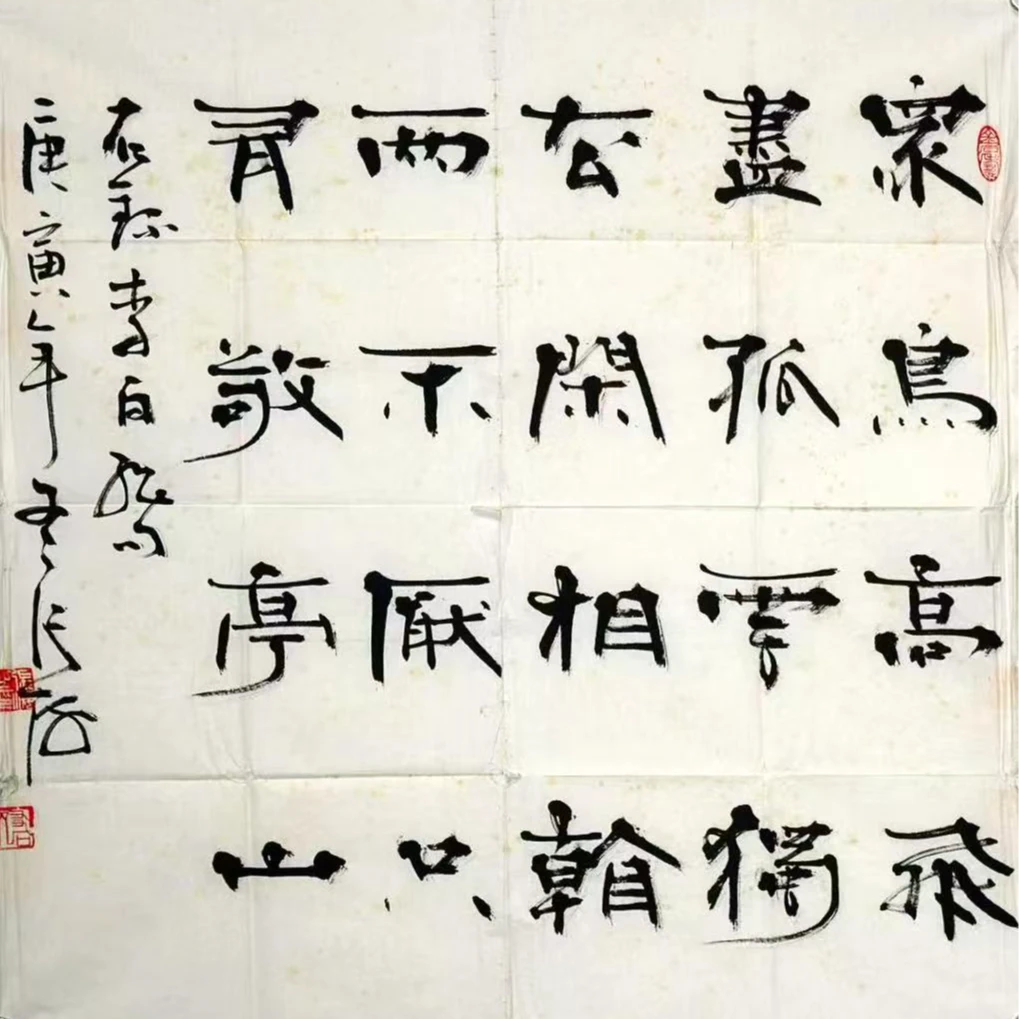 眾鳥高飛
盡孤雲獨
去閑相看
兩不厭只
有敬亭山
右錄李白詩
庚寅年冬張海